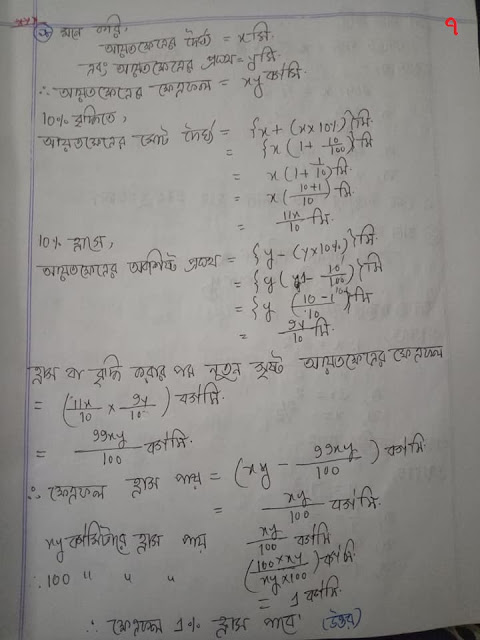 ৭
মনে করি,
আয়তক্ষেত্রের দৈর্ঘ্য = x মি.
এবং আয়তক্ষেত্রের প্রস্থ = y মি.
∴ আয়তক্ষেত্রের ক্ষেত্রফল = xy ব.মি.
10% বৃদ্ধিতে,
আয়তক্ষেত্রের মোট দৈর্ঘ্য = {x + (x × 10%)} মি.
= {x (1 + 10/100)} মি
= x (1 + 1/10) মি
= x (10+1/10) মি.
= 11x/10 মি.
10% হ্রাসে,
আয়তক্ষেত্রের অবশিষ্ট প্রস্থ = {y - (y × 10%)} মি.
= {y (1 - 10/100)} মি
= {y (10 - 1/10)} মি
= 9y/10 মি.
হ্রাস বা বৃদ্ধি করার পর নতুন সৃষ্ট আয়তক্ষেত্রের ক্ষেত্রফল
= (11x/10 × 9y/10) ব.মি
= 99xy/100 ব.মি.
∴ ক্ষেত্রফল হ্রাস পায় = (xy - 99xy/100) ব.মি.
= xy/100 ব.মি.
xy ব.মিটারে হ্রাস পায় xy/100 ব.মি
∴ 100 " " " (100 × xy/xy × 100) ব.মি.
= 1 ব.মি.
∴ ক্ষেত্রফল 1% হ্রাস পাবে (উত্তর)